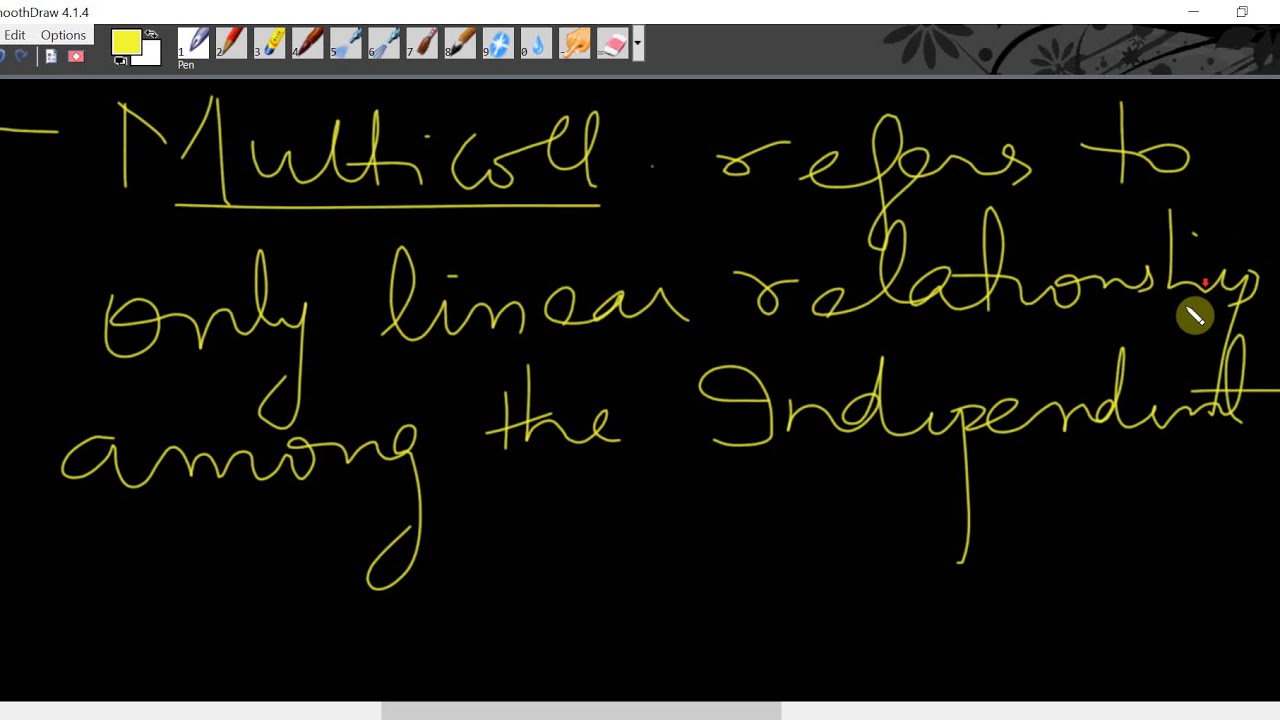 moothDraw 4.1.4
Edit Options
1 2 3 4 5 6 7 8 9 0 - =
Pen
- Multicoll. refers to
only linear relationship
among the Independent